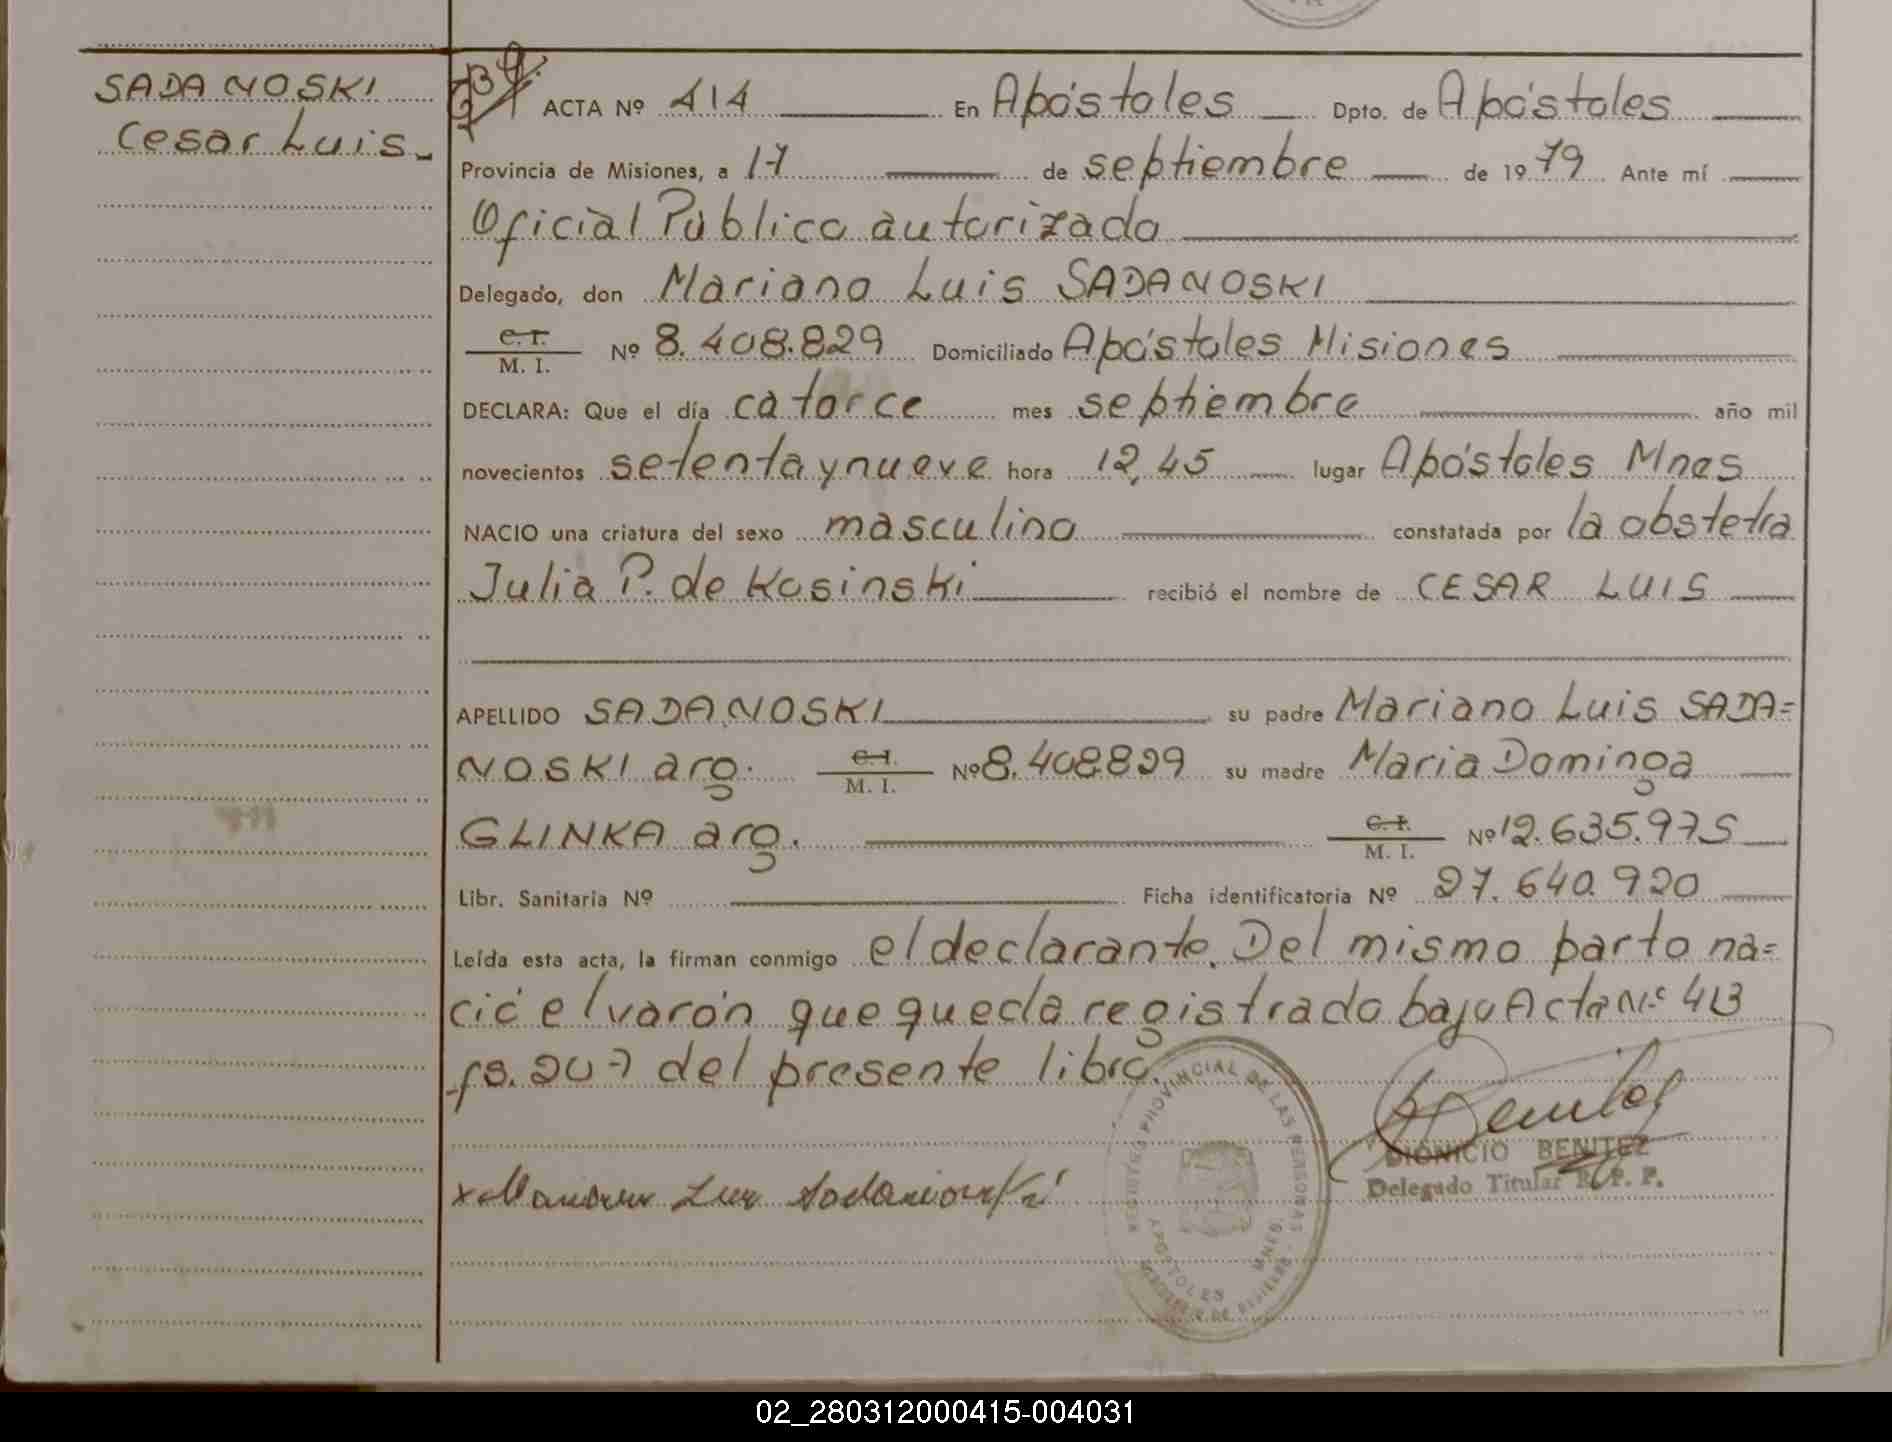 SADANOSKI
Cesar Luis.-
ACTA Nº 414 En Apóstoles Dpto. de Apóstoles
Provincia de Misiones, a 17 de septiembre de 1979 Ante mí
Oficial Público autorizado
Delegado, don Mariano Luis SADANOSKI
C. I.
M. I.
Nº 8.408.829 Domiciliado Apóstoles Misiones
DECLARA: Que el día catorce mes septiembre año mil
novecientos setenta y nueve hora 12,45 lugar Apóstoles Mnes
NACIO una criatura del sexo masculino constatada por la obstetra
Julia P. de Kosinski recibió el nombre de CESAR LUIS
APELLIDO SADANOSKI su padre Mariano Luis SADA=
NOSKI arg. C. I. M. I. Nº 8.408.829 su madre Maria Dominga
GLINKA arg. C. I. M. I. Nº 12.635.975
Libr. Sanitaria Nº Ficha identificatoria Nº 27.640.920
Leída esta acta, la firman conmigo el declarante. Del mismo parto na=
ció el varón que queda registrado bajo Acta Nº 413
fs. 207 del presente libro.
REGISTRO PROVINCIAL DE LAS PERSONAS
APOSTOLES MNES.
DIONICIO BENITEZ
Delegado Titular R. P. P.
x Mariano Luis Sadanoski
02_280312000415-004031